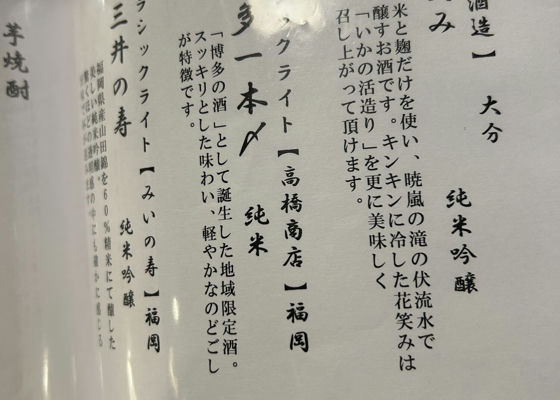 酒造】 大分
み 純米吟醸
米と麹だけを使い、暁嵐の滝の伏流水で
醸すお酒です。キンキンに冷した花笑みは
「いかの活造り」を更に美味しく
召し上がって頂けます。
クライト【高橋商店】福岡
多一本〆 純米
「博多の酒」として誕生した地域限定酒。
スッキリとした味わい、軽やかなのどごし
が特徴です。
ラシックライト【みいの寿】福岡
三井の寿 純米吟醸
福岡県産山田錦を60%精米にて醸した
美しい純米吟醸。
芋焼酎